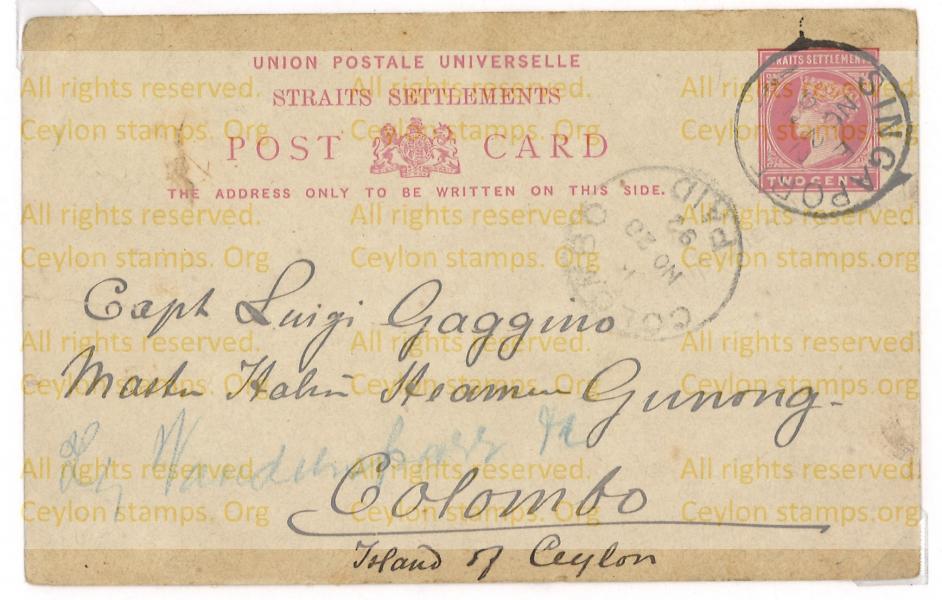 UNION POSTALE UNIVERSELLE
STRAITS SETTLEMENTS
POST CARD
THE ADDRESS ONLY TO BE WRITTEN ON THIS SIDE.
STRAITS SETTLEMENTS
TWO CENTS
SINGAPORE
NO
COLOMBO
PAID
NO 20
92
Capt Luigi Gaggino
Master Steamer Gunong-
Colombo
Island of Ceylon
All rights reserved. All rights reserved. All rights reserved.
Ceylon stamps. Org Ceylon stamps. Org Ceylon stamps. Org
All rights reserved. All rights reserved. All rights reserved.
Ceylon stamps. Org Ceylon stamps. Org Ceylon stamps. Org
All rights reserved. All rights reserved. All rights reserved.
Ceylon stamps. Org Ceylon stamps. Org Ceylon stamps. org
All rights reserved. All rights reserved. All rights reserved.
Ceylon stamps. Org Ceylon stamps. Org Ceylon stamps. Org